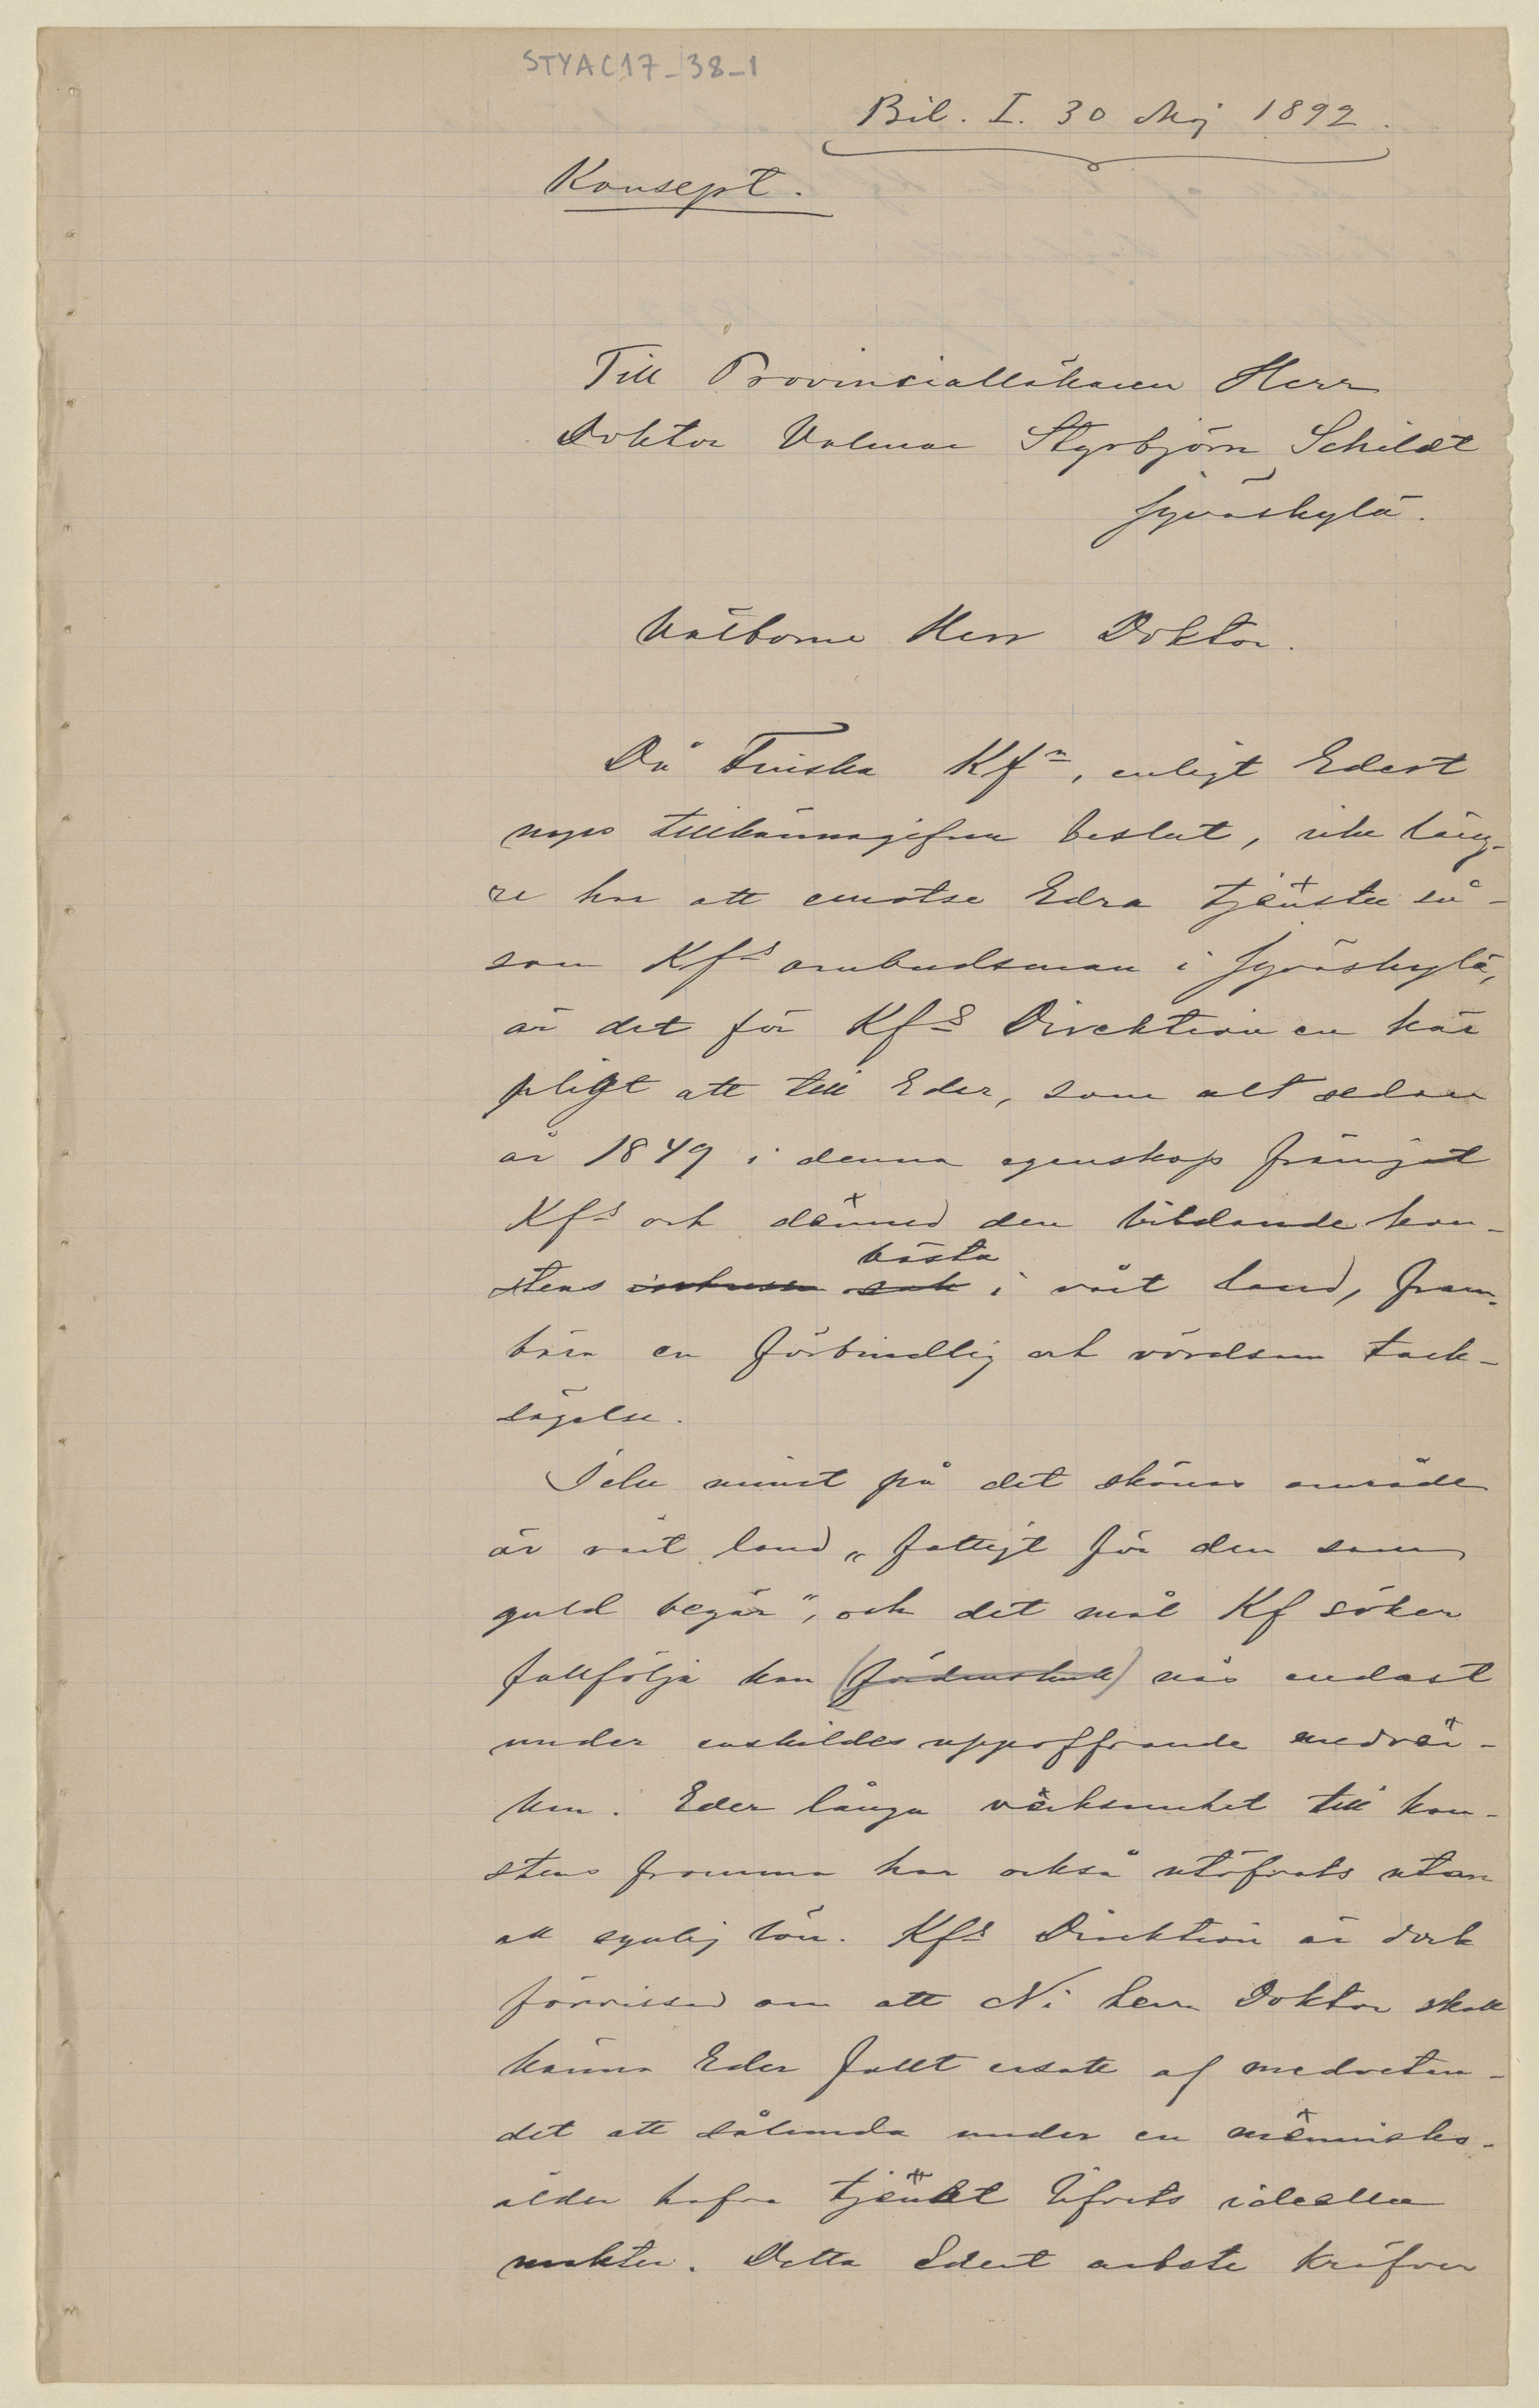 STYAC17_38_1
Bil. I. 30 Maj 1892.
Konsept.
Till Provinsialläkaren Herr
Doktor Volmar Styrbjörn Schildt
Jyväskylä.
Välborne Herr Doktor.
Då Finska Kfn, enligt Edert
nyss tillkännagifna beslut, icke läng-
re har att emotse Edra tjänster så-
som Kfs ombudsman i Jyväskylä,
är det för Kfs Direktion en kär
pligt att till Eder, som alt sedan
år 1849 i denna egenskap främjat
Kfs och därmed den bildande kon-
stens intressen sak bästa i vårt land, fram-
bära en förbindlig och vördsam tack-
sägelse.
Icke minst på det skönas område
är vårt land „fattigt för den som
guld begär", och det mål Kf söker
fullfölja kan (fördenskull) nås endast
under enskildes uppoffrande medvär-
kan. Eder långa värksamhet till kon-
stens fromma har också utöfvats utan
all synlig lön. Kfs Direktion är dock
förvissad om att Ni herr Doktor skall
känna Eder fullt ersatt af medvetan-
det att sålunda under en människo-
ålder hafva tjänat lifvets ideella
makter. Detta Edert arbete kräfver